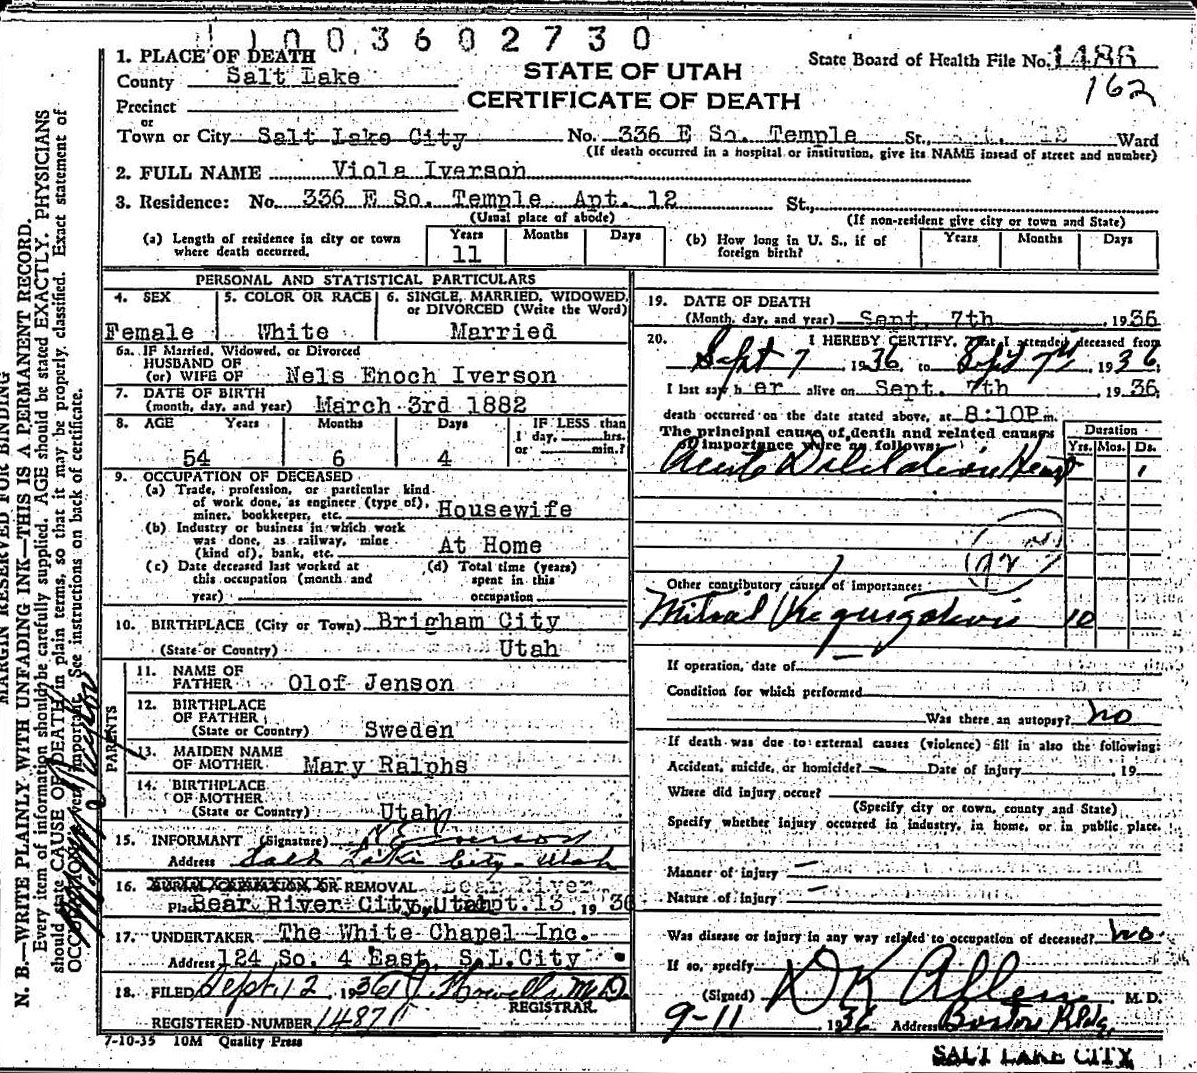 1 0 0 3 6 0 2 7 3 0
State Board of Health File No. 1486
162
STATE OF UTAH
CERTIFICATE OF DEATH
1. PLACE OF DEATH
County Salt Lake
Precinct
or
Town or City Salt Lake City No. 336 E So. Temple St., 12 Ward
(If death occurred in a hospital or institution, give its NAME insead of street and number)
2. FULL NAME Viola Iverson
3. Residence: No. 336 E So. Temple Apt. 12 St.,
(Usual place of abode) (If non-resident give city or town and State)
(a) Length of residence in city or town where death occurred. Years 11 Months Days
(b) How long in U. S., if of foreign birth? Years Months Days
PERSONAL AND STATISTICAL PARTICULARS
4. SEX Female
5. COLOR OR RACE White
6. SINGLE, MARRIED, WIDOWED, or DIVORCED (Write the Word) Married
6a. IF Married, Widowed, or Divorced
HUSBAND OF
(or) WIFE OF Nels Enoch Iverson
7. DATE OF BIRTH
(month, day, and year) March 3rd 1882
8. AGE Years 54 Months 6 Days 4 IF LESS than 1 day, hrs. or min.?
9. OCCUPATION OF DECEASED
(a) Trade, profession, or particular kind
of work done, as engineer (type of),
miner, bookkeeper, etc. Housewife
(b) Industry or business in which work
was done, as railway, mine
(kind of), bank, etc. At Home
(c) Date deceased last worked at
this occupation (month and
year)
(d) Total time (years)
spent in this
occupation
10. BIRTHPLACE (City or Town) Brigham City
(State or Country) Utah
PARENTS
11. NAME OF
FATHER Olof Jenson
12. BIRTHPLACE
OF FATHER
(State or Country) Sweden
13. MAIDEN NAME
OF MOTHER Mary Ralphs
14. BIRTHPLACE
OF MOTHER
(State or Country) Utah
15. INFORMANT (Signature) N E Iverson
Address Salt Lake City - Utah
16. BURIAL, CREMATION OR REMOVAL Bear River
Place Bear River City, Utah Sept. 13 1936
17. UNDERTAKER The White Chapel Inc.
Address 124 So. 4 East, S.L.City
18. FILED Sept 12, 1936 Howells M.D.
REGISTRAR.
REGISTERED NUMBER 1487
7-10-35 10M Quality Press
19. DATE OF DEATH
(Month, day, and year) Sept. 7th, 1936
20. I HEREBY CERTIFY, That I attended deceased from
Sept 7 1936, to Sept 7th 1936,
I last saw her alive on Sept. 7th 1936,
death occurred on the date stated above, at 8:10P m.
The principal cause of death and related causes
of importance were as follows:
Duration
Yrs. Mos. Ds.
Acute Dilatation Heart 1
Other contributory causes of importance:
Mitral Regurgitation 10
If operation, date of
Condition for which performed
Was there an autopsy? no
If death was due to external causes (violence) fill in also the following:
Accident, suicide, or homicide? Date of injury 19
Where did injury occur?
(Specify city or town, county and State)
Specify whether injury occurred in industry, in home, or in public place.
Manner of injury
Nature of injury
Was disease or injury in any way related to occupation of deceased? no
If so, specify
(Signed) D K Allen M. D.
9-11 1936 Address Boston Bldg.
SALT LAKE CITY
MARGIN RESERVED FOR BINDING
N. B.—WRITE PLAINLY WITH UNFADING INK—THIS IS A PERMANENT RECORD.
Every item of information should be carefully supplied. AGE should be stated EXACTLY. PHYSICIANS
should state CAUSE OF DEATH in plain terms, so that it may be properly classified. Exact statement of
OCCUPATION is very important. See instructions on back of certificate.